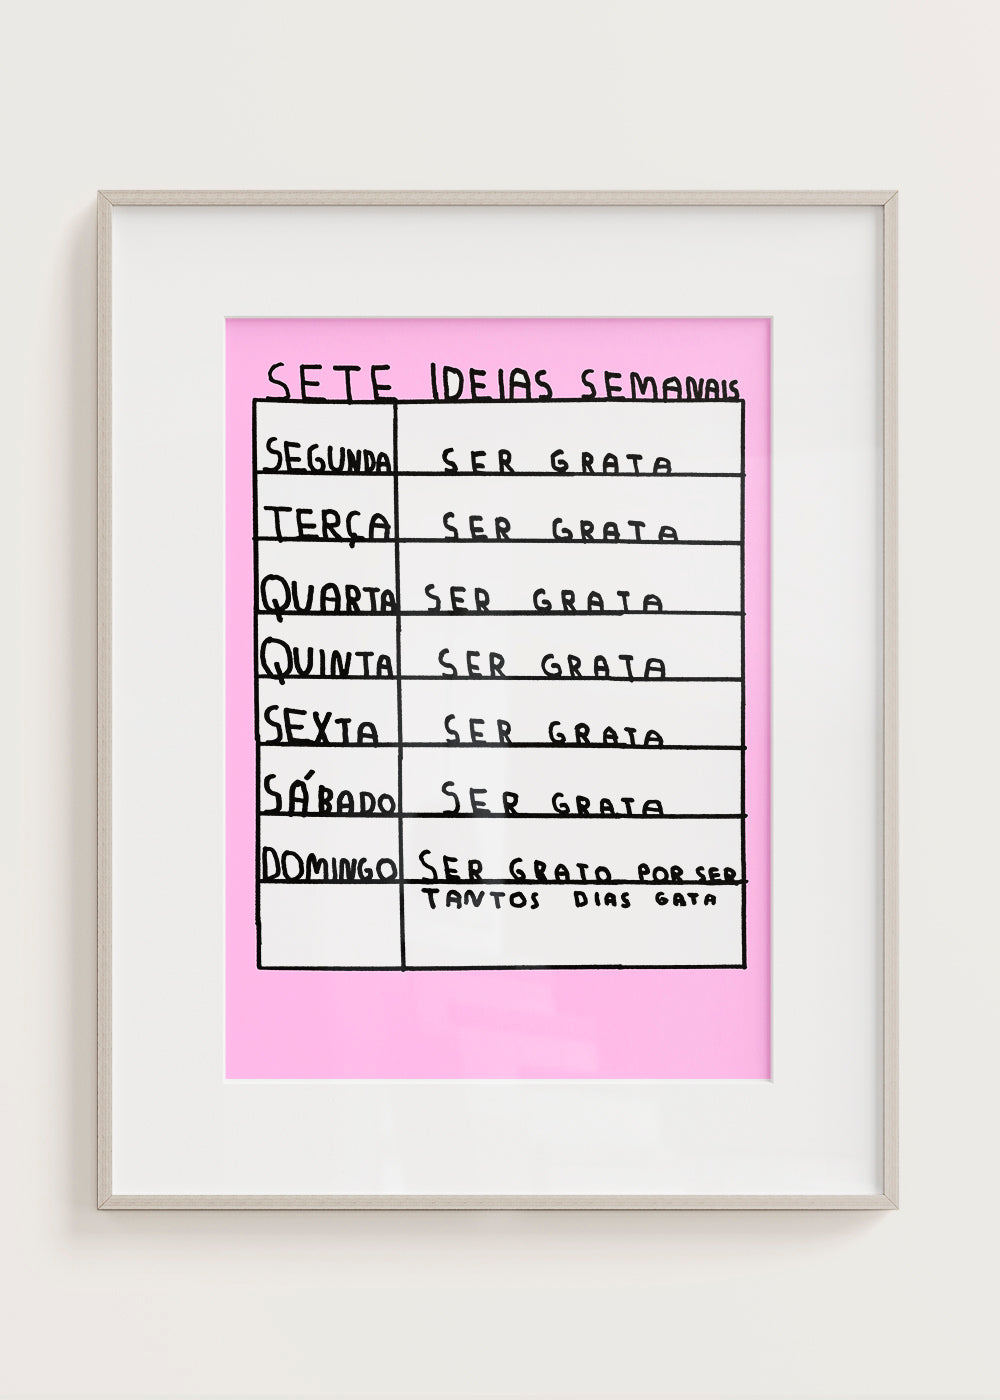 SETE IDEIAS SEMANAIS
SEGUNDA SER GRATA
TERÇA SER GRATA
QUARTA SER GRATA
QUINTA SER GRATA
SEXTA SER GRATA
SÁBADO SER GRATA
DOMINGO SER GRATO POR SER
TANTOS DIAS GATA